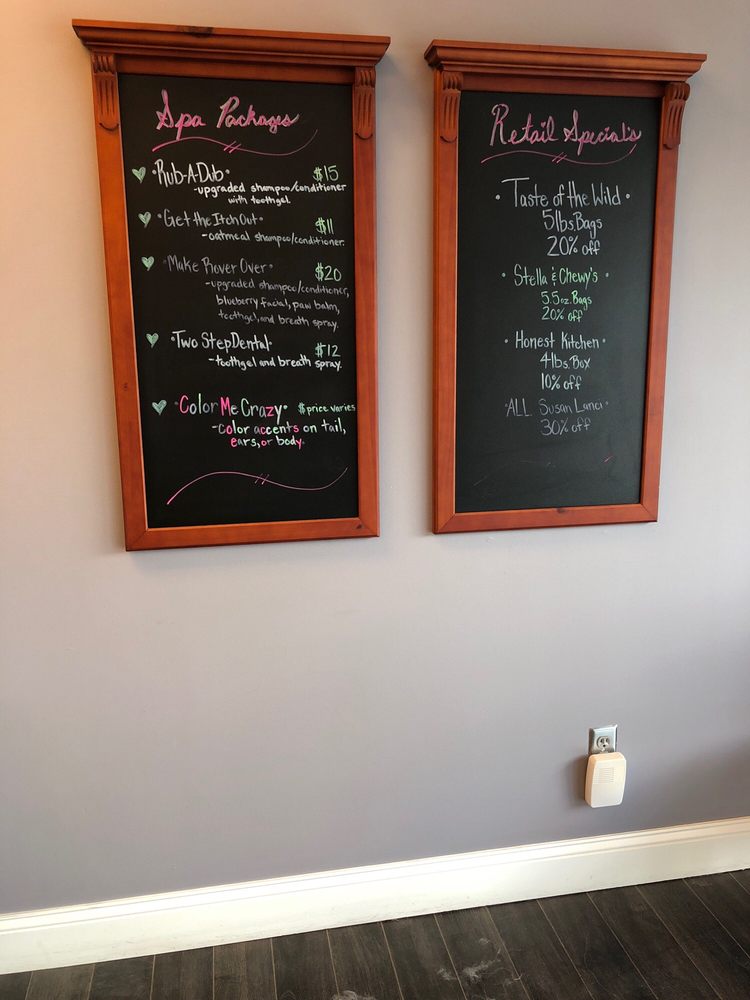 Spa Packages
"Rub-A-Dub" $15
-upgraded shampoo/conditioner
with toothgel.
"Get the Itch Out" $11
-oatmeal shampoo/conditioner.
"Make Rover Over" $20
-upgraded shampoo/conditioner,
blueberry facial, paw balm,
toothgel, and breath spray.
"Two Step Dental" $12
-toothgel and breath spray.
"Color Me Crazy" $price varies
-color accents on tail,
ears, or body.
Retail Specials
• Taste of the Wild •
5lbs. Bags
20% off
• Stella & Chewy's •
5.5oz. Bags
20% off
• Honest Kitchen •
4lbs. Box
10% off
•ALL Susan Lanci •
30% off